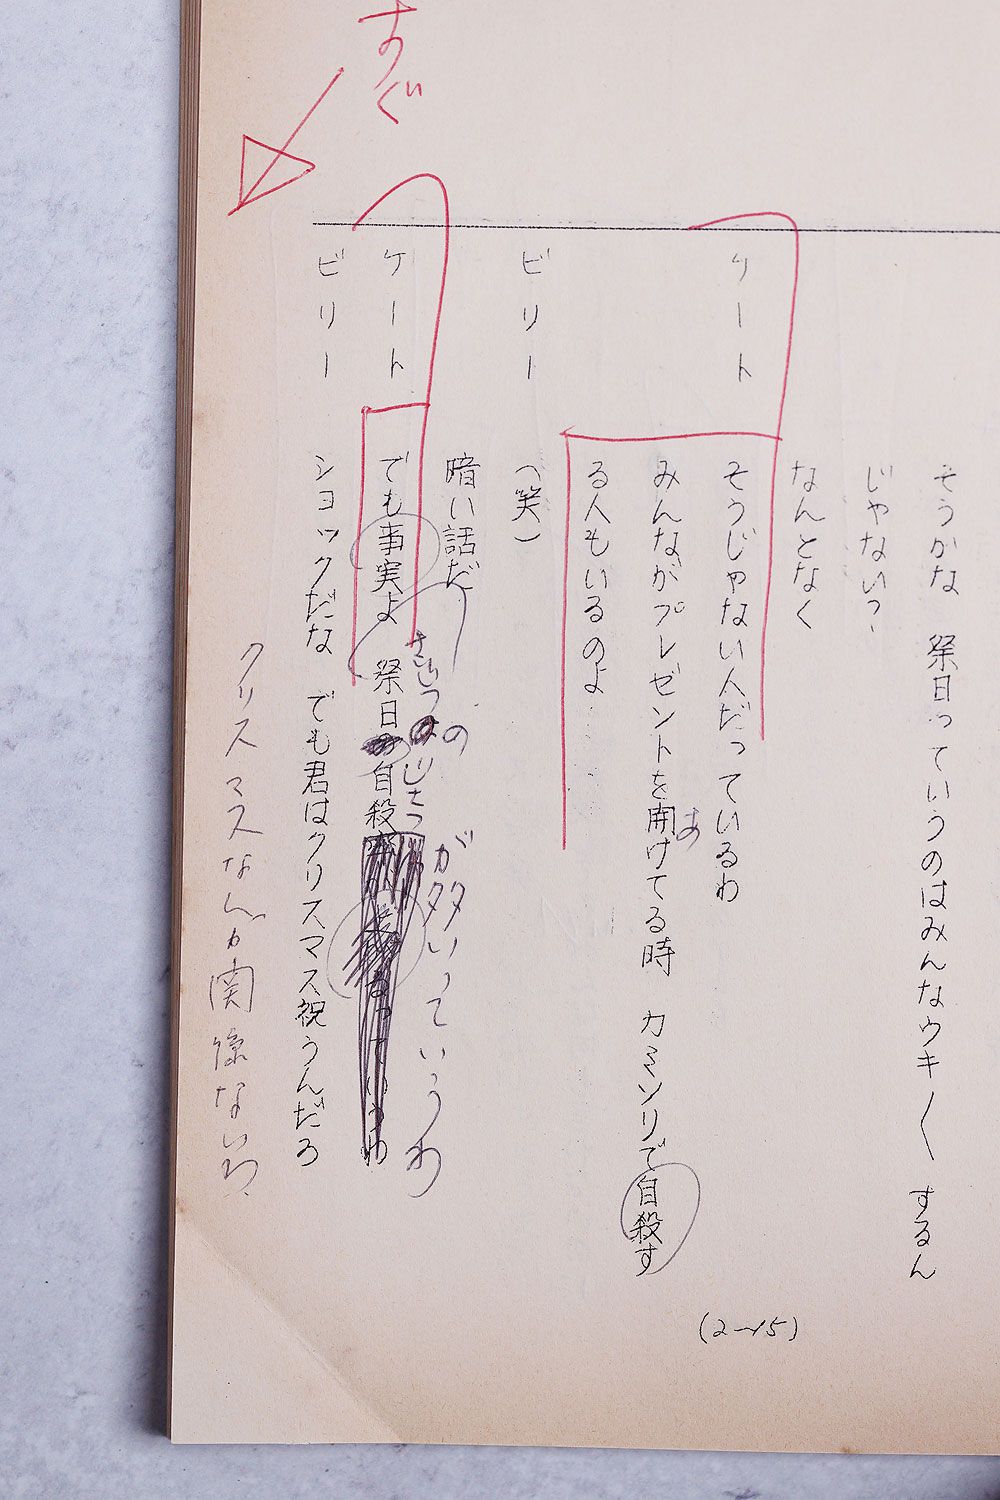 そうかな　祭日っていうのはみんなウキ〱するん
じゃない？
なんとなく
ケート　そうじゃない人だっているわ
みんながプレゼントを開けてる時　カミソリで自殺す
あ
る人もいるのよ
ビリー　（笑）
暗い話だ
の
が多いっていうわ
ケート　でも事実よ　祭日 自殺
ビリー　ショックだな　でも君はクリスマス祝うんだろ
クリスマスなんか関係ないわ
すぐ
(2-15)